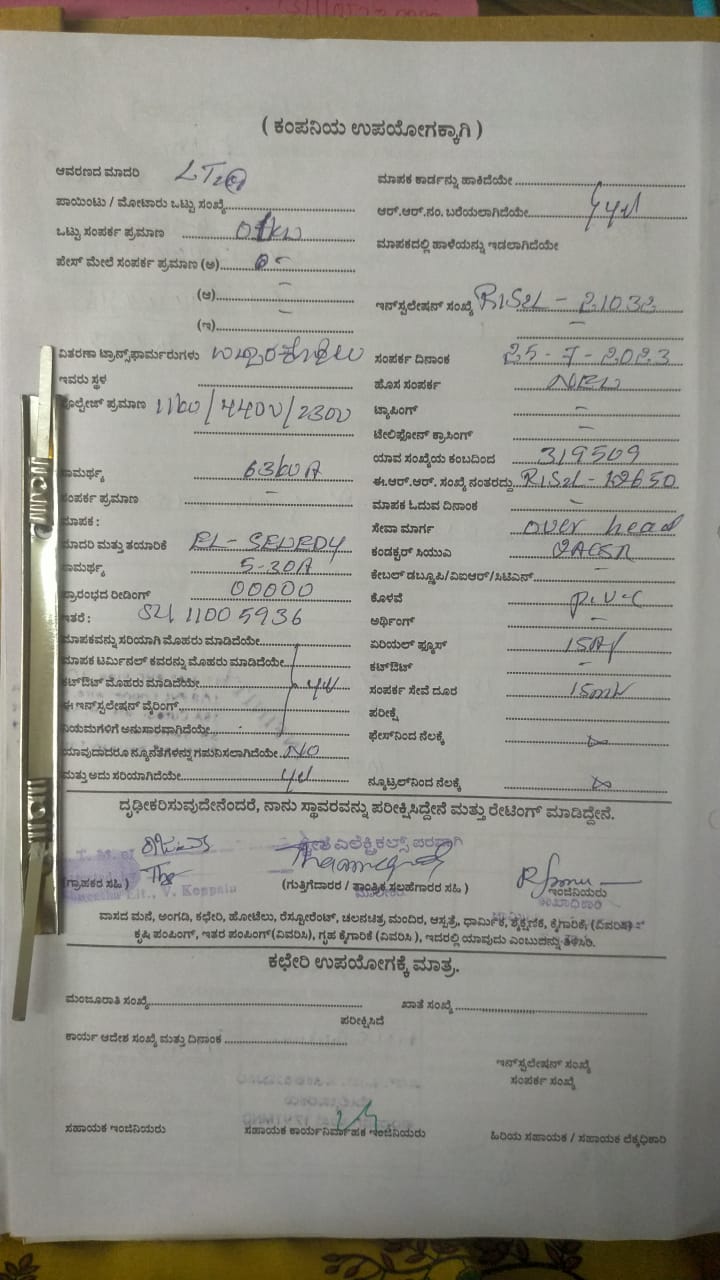 ( ಕಂಪನಿಯ ಉಪಯೋಗಕ್ಕಾಗಿ )
ಆವರಣದ ಮಾದರಿ LT2
ಮಾಪಕ ಕಾರ್ಡನ್ನು ಹಾಕಿದೆಯೇ
ಪಾಯಿಂಟು / ಮೋಟಾರು ಒಟ್ಟು ಸಂಖ್ಯೆ
ಆರ್.ಆರ್.ನಂ. ಬರೆಯಲಾಗಿದೆಯೇ
ಒಟ್ಟು ಸಂಪರ್ಕ ಪ್ರಮಾಣ
ಮಾಪಕದಲ್ಲಿ ಹಾಳೆಯನ್ನು ಇಡಲಾಗಿದೆಯೇ
ಪೇಸ್ ಮೇಲೆ ಸಂಪರ್ಕ ಪ್ರಮಾಣ (ಅ)
(ಆ) -
ಇನ್‌ಸ್ಟಲೇಷನ್ ಸಂಖ್ಯೆ - 21032
(ಇ) -
ವಿತರಣಾ ಟ್ರಾನ್ಸ್‌ಫಾರ್ಮರುಗಳು
ಸಂಪರ್ಕ ದಿನಾಂಕ 25-7-2023
ಇವರು ಸ್ಥಳ
ಹೊಸ ಸಂಪರ್ಕ NEW
ವೋಲ್ಟೇಜ್ ಪ್ರಮಾಣ
ಟ್ಯಾಪಿಂಗ್ -
ಟೇಲಿಫೋನ್ ಕ್ರಾಸಿಂಗ್ -
ಯಾವ ಸಂಖ್ಯೆಯ ಕಂಬದಿಂದ 319509
ಸಾಮರ್ಥ್ಯ
ಈ.ಆರ್.ಆರ್. ಸಂಖ್ಯೆ ನಂತರದ್ದು
ಸಂಪರ್ಕ ಪ್ರಮಾಣ -
ಮಾಪಕ ಓದುವ ದಿನಾಂಕ -
ಮಾಪಕ :
ಸೇವಾ ಮಾರ್ಗ over head
ಮಾದರಿ ಮತ್ತು ತಯಾರಿಕೆ
ಕಂಡಕ್ಟರ್ ಸಿಯುಎ
ಸಾಮರ್ಥ್ಯ 5-30A
ಕೇಬಲ್ ಡಬ್ಲೂಪಿ/ವಿಐಆರ್/ಸಿಟಿಎಸ್
ಪ್ರಾರಂಭದ ರೀಡಿಂಗ್ 00000
ಕೊಳವೆ P.V.C
ಇತರೆ : 11005936
ಅರ್ಥಿಂಗ್ -
ಮಾಪಕವನ್ನು ಸರಿಯಾಗಿ ಮೊಹರು ಮಾಡಿದೆಯೇ
ಏರಿಯಲ್ ಫ್ಯೂಸ್
ಮಾಪಕ ಟರ್ಮಿನಲ್ ಕವರನ್ನು ಮೊಹರು ಮಾಡಿದೆಯೇ
ಕಟ್‌ಔಟ್ -
ಕಟ್‌ಔಟ್ ಮೊಹರು ಮಾಡಿದೆಯೇ
ಸಂಪರ್ಕ ಸೇವೆ ದೂರ
ಈ ಇನ್‌ಸ್ಟಲೇಷನ್ ವೈರಿಂಗ್
ಪರೀಕ್ಷೆ
ನಿಯಮಗಳಿಗೆ ಅನುಸಾರವಾಗಿದೆಯೇ
ಫೇಸ್‌ನಿಂದ ನೆಲಕ್ಕೆ
ಯಾವುದಾದರೂ ನ್ಯೂನತೆಗಳನ್ನು ಗಮನಿಸಲಾಗಿದೆಯೇ NO
ಮತ್ತು ಅದು ಸರಿಯಾಗಿದೆಯೇ
ನ್ಯೂಟ್ರಲ್‌ನಿಂದ ನೆಲಕ್ಕೆ
ದೃಢೀಕರಿಸುವುದೇನೆಂದರೆ, ನಾನು ಸ್ಥಾವರವನ್ನು ಪರೀಕ್ಷಿಸಿದ್ದೇನೆ ಮತ್ತು ರೇಟಿಂಗ್ ಮಾಡಿದ್ದೇನೆ.
ಎಲೆಕ್ಟ್ರಿಕಲ್ಸ್ ಪರವಾಗಿ
(ಗ್ರಾಹಕರ ಸಹಿ )
(ಗುತ್ತಿಗೆದಾರರ / ತಾಂತ್ರಿಕ ಸಲಹೆಗಾರರ ಸಹಿ )
ಇಂಜಿನಿಯರು
V. Koppalu
ವಾಸದ ಮನೆ, ಅಂಗಡಿ, ಕಛೇರಿ, ಹೋಟೆಲು, ರೆಸ್ಟೋರೆಂಟ್, ಚಲನಚಿತ್ರ ಮಂದಿರ, ಆಸ್ಪತ್ರೆ, ಧಾರ್ಮಿಕ, ಶೈಕ್ಷಣಿಕ, ಕೈಗಾರಿಕೆ, (ವಿವರಿಸಿ)
ಕೃಷಿ ಪಂಪಿಂಗ್, ಇತರ ಪಂಪಿಂಗ್(ವಿವರಿಸಿ), ಗೃಹ ಕೈಗಾರಿಕೆ (ವಿವರಿಸಿ ), ಇದರಲ್ಲಿ ಯಾವುದು ಎಂಬುದನ್ನು ತಿಳಿಸಿರಿ.
ಕಛೇರಿ ಉಪಯೋಗಕ್ಕೆ ಮಾತ್ರ.
ಮಂಜೂರಾತಿ ಸಂಖ್ಯೆ
ಖಾತೆ ಸಂಖ್ಯೆ
ಪರೀಕ್ಷಿಸಿದೆ
ಕಾರ್ಯ ಆದೇಶ ಸಂಖ್ಯೆ ಮತ್ತು ದಿನಾಂಕ
ಇನ್‌ಸ್ಟಲೇಷನ್ ಸಂಖ್ಯೆ
ಸಂಪರ್ಕ ಸಂಖ್ಯೆ
ಸಹಾಯಕ ಇಂಜಿನಿಯರು
ಸಹಾಯಕ ಕಾರ್ಯನಿರ್ವಾಹಕ ಇಂಜಿನಿಯರು
ಹಿರಿಯ ಸಹಾಯಕ / ಸಹಾಯಕ ಲೆಕ್ಕಧಿಕಾರಿ